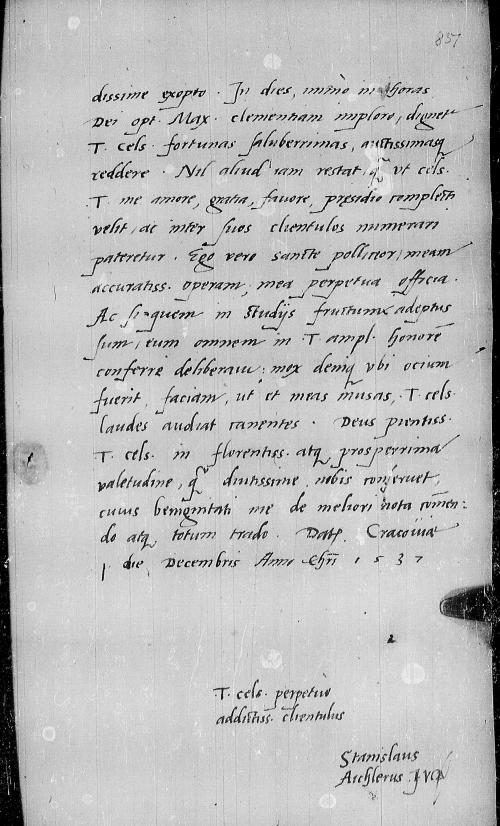 857
dissime exopto. In dies, immo in horas
Dei opt. Max. clementiam imploro, dignet
T. cels. fortunas saluberrimas, auctissimasq
reddere. Nil aliud iam restat, q̃ ut cels.
T. me amore, gratia, favore, presidio complecti
velit, ac inter suos clientulos numerari
pateretur. Ego vero sancte polliceor, meam
accuratiss. operam, mea perpetua officia.
Ac si quem in studijs fructum adeptus
sum, eum omnem in T. ampl. honorē
conferre deliberavi: mox deniq ubi ocium
fuerit, faciam, ut et meas musas, T. cels.
laudes audiat canentes. Deus pientiss.
T. cels. in florentiss. atq prosperrima
valetudine, q̃ diutissime nobis conservet,
cuius benignitati me de meliori nota cōmen:
do atq totum trado. Dat. Cracoviæ
1 die Decembris Anno Chri 1537
T. cels. perpetuo
addictiss. clientulus
Stanislaus
Aichlerus JVD